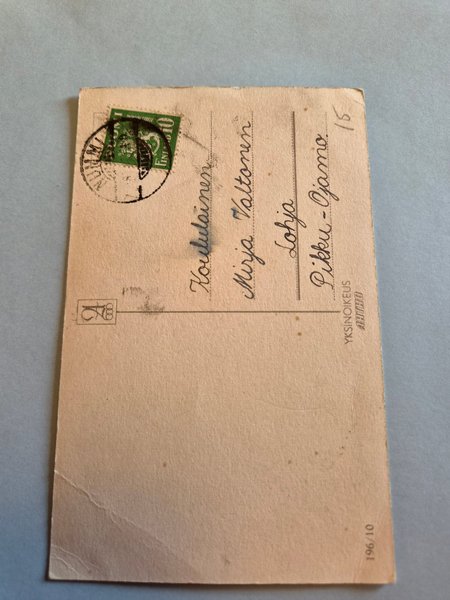 NUMMI
10
15
Koululainen
Mirja Valtonen
Lohja
Pikku-Ojamo.
YKSINOIKEUS
196/10